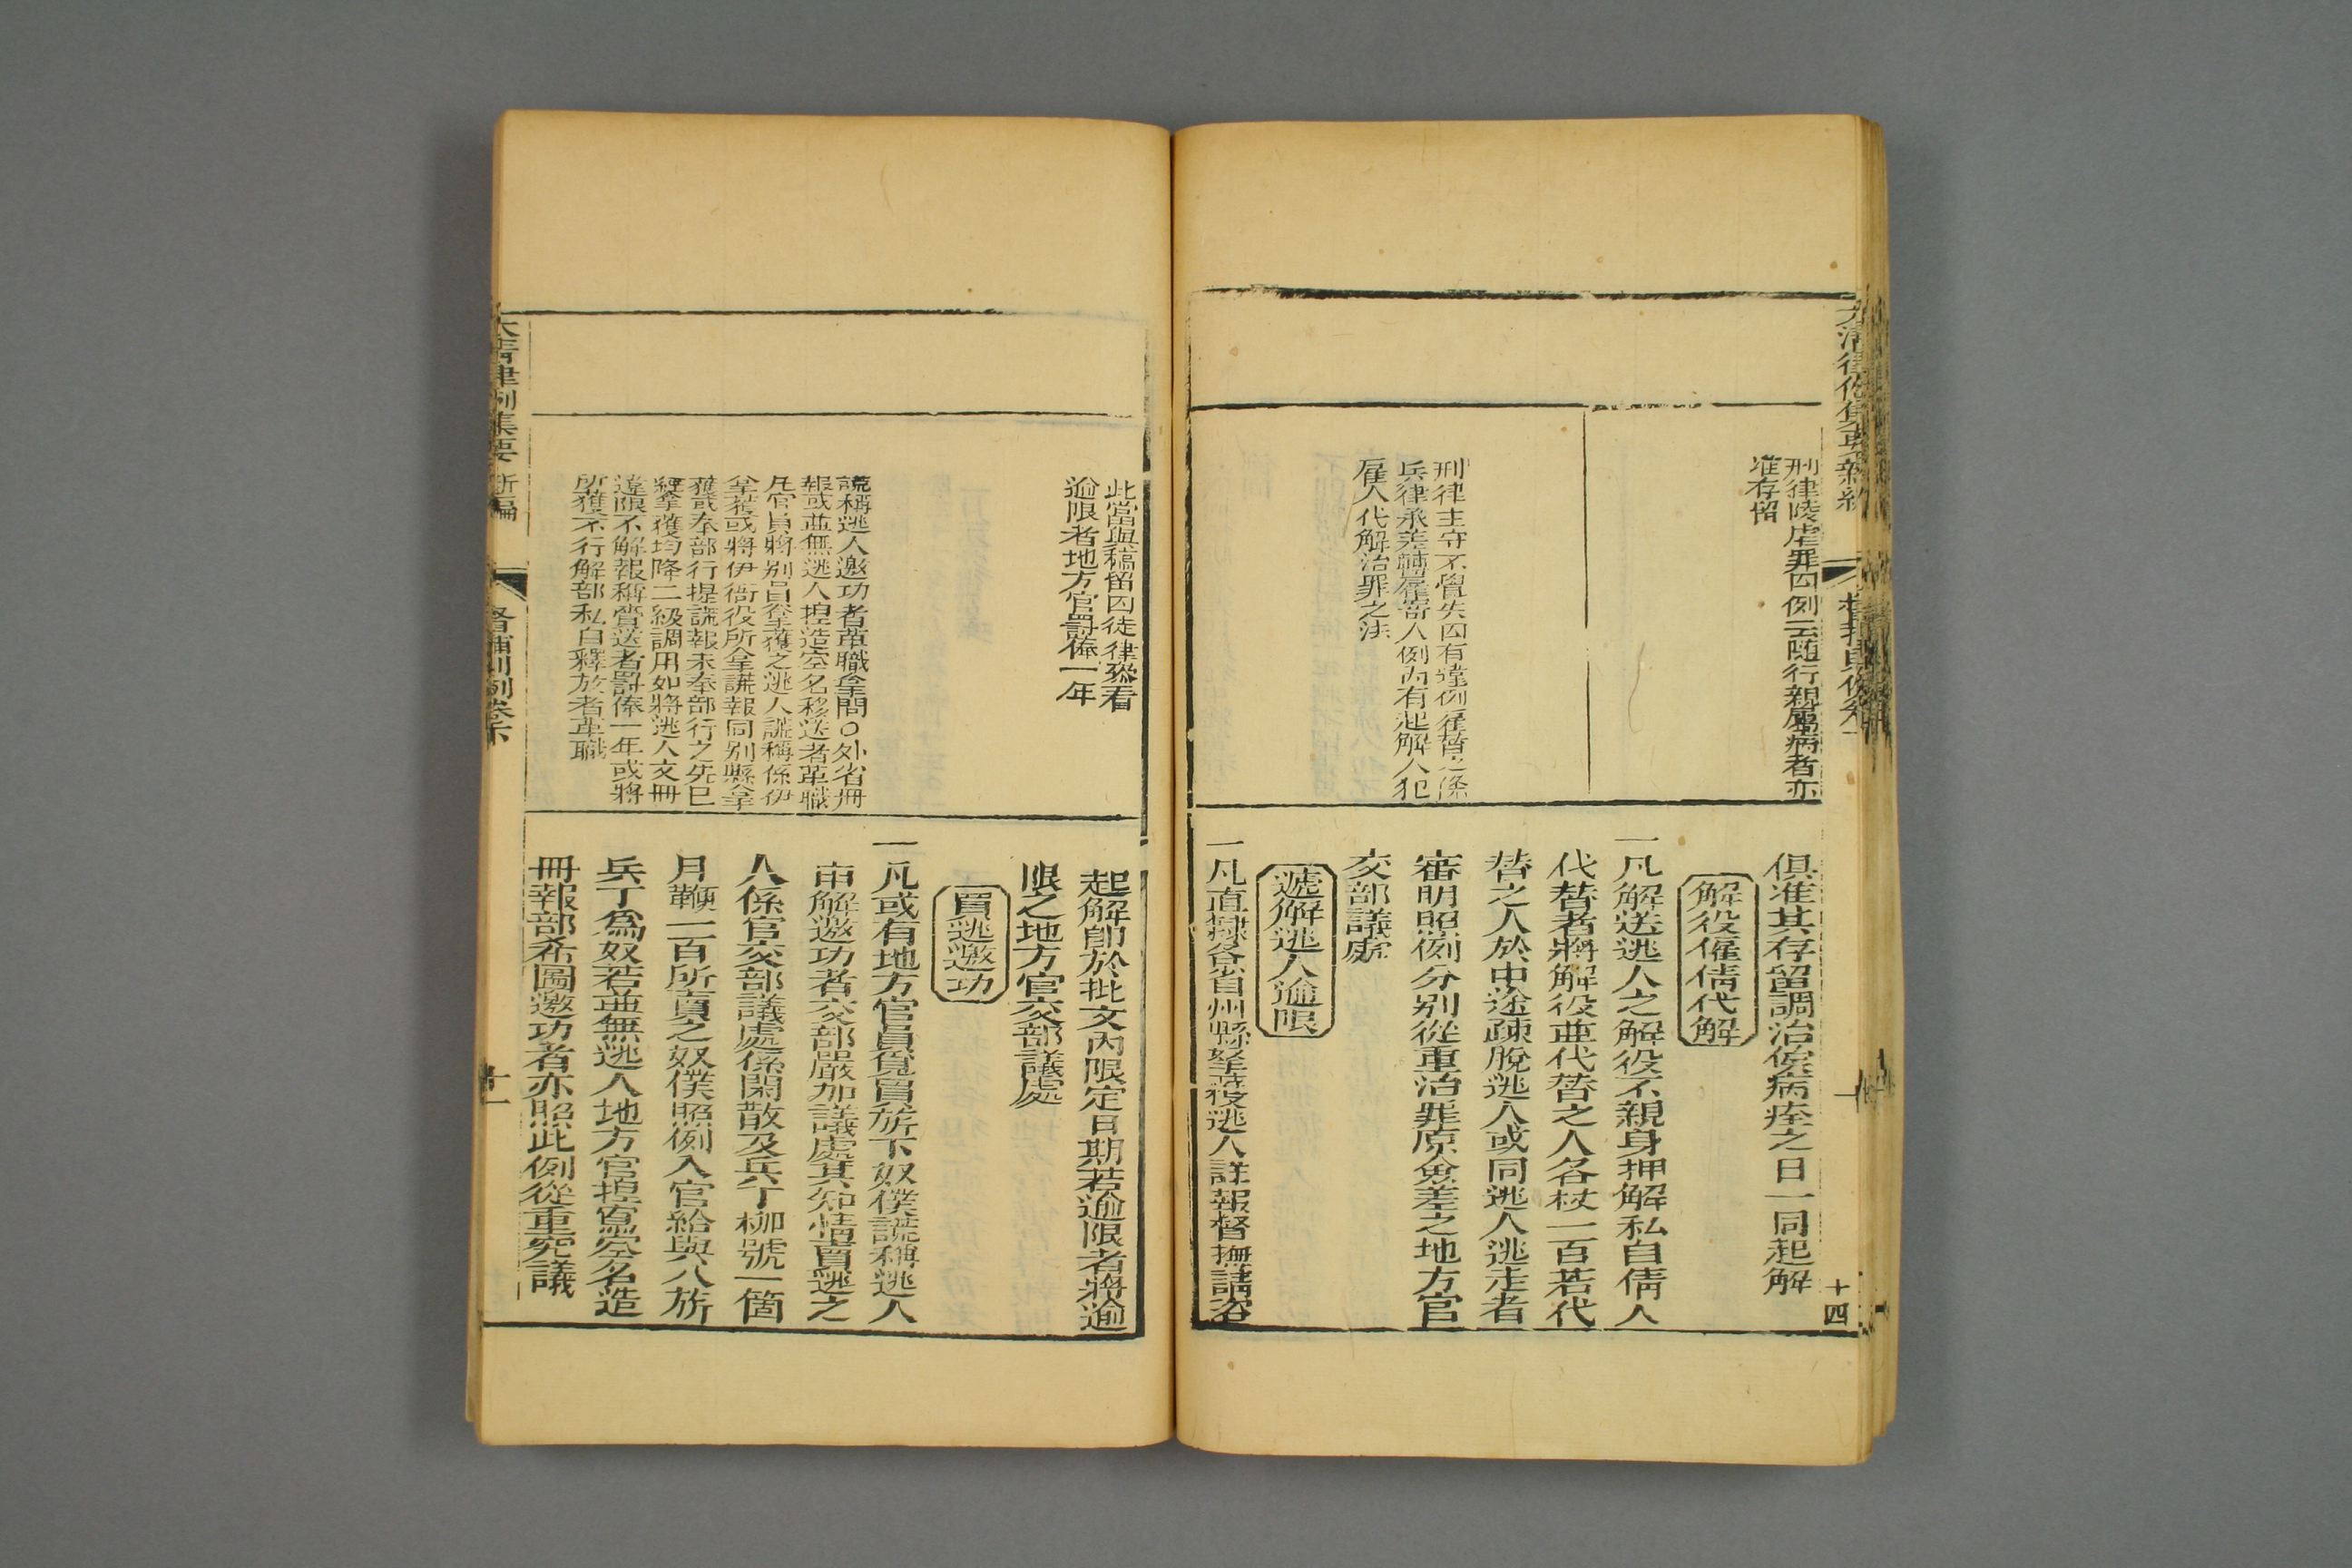 刑律陵虐罪囚例云隨行親屬病者亦
准存留
刑律主守不覺失囚有違例雇替之條
兵律承差轉雇寄人例內有起解人犯
雇人代解治罪之法
俱准其存留調治俟病痊之日一同起解
解役僱倩代解
一凡解送逃人之解役不親身押解私自倩人
代替者將解役並代替之人各杖一百若代
替之人於中途疎脫逃人或同逃人逃走者
審明照例分別從重治罪原僉差之地方官
交部議處
遞解逃人逾限
一凡直隸各省州縣拏獲逃人詳報督撫請咨
十四
此當與稽留囚徒律叅看
逾限者地方官罰俸一年
謊稱逃人邀功者革職拿問○外省冊
報或並無逃人揑造空名移送者革職
凡官員將別員拿獲之逃人謊稱係伊
拿獲或將伊衙役所拿謊報同別縣拿
獲或奉部行提謊報未奉部行之先已
經拿獲均降二級調用如將逃人文冊
違限不解報稱賫送者罰俸一年或將
所獲不行解部私自釋放者革職
起解卽於批文內限定日期若逾限者將逾
限之地方官交部議處
買逃邀功
一凡或有地方官員覓買旂下奴僕謊稱逃人
申解邀功者交部嚴加議處其知情賣逃之
人係官交部議處係閑散及兵丁枷號一箇
月鞭一百所賣之奴僕照例入官給與八旂
兵丁爲奴若並無逃人地方官揑寫空名造
冊報部希圖邀功者亦照此例從重究議
大清律例集要新編
督捕則例卷下